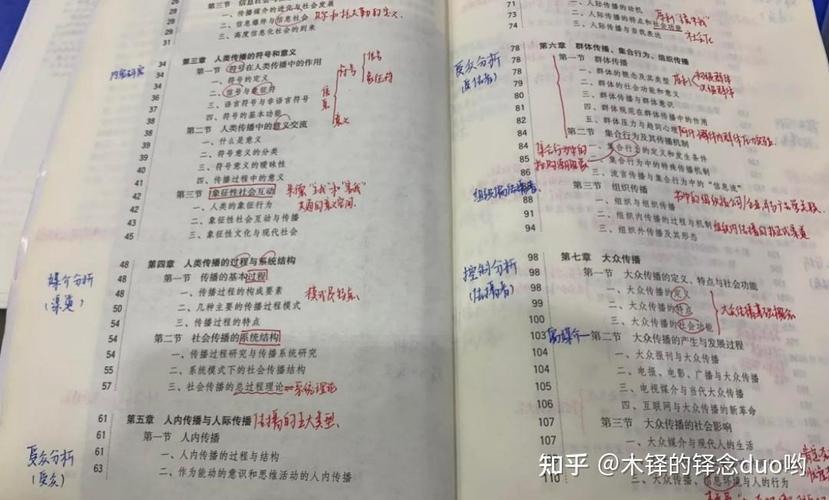 第三节 信息社会
一、传播媒介的进化与社会发展
二、信息爆炸与信息社会
三、高度信息化社会的到来
29
31
34 第三章 人类传播的符号和意义
内容研究
34 第一节 符号在人类传播中的作用
一、符号的定义
二、信号与象征符
三、语言符号与非语言符号
四、符号的基本功能
符号
信号
象征符
意义
第二节 人类传播中的意义交流
一、什么是意义
二、符号意义的分类
三、符号意义的暧昧性
四、传播过程中的意义
42 第三节 象征性社会互动 米德"主我"和"客我"
42 一、人类的象征行为 共通的意义空间
43 二、象征性社会互动与传播
45 三、象征性文化与现代社会
48 第四章 人类传播的过程与系统结构
媒介分析
(渠道)
48 第一节 传播的基本过程
48 一、传播过程的构成要素
50 二、几种主要的传播过程模式
模式及特点
54 三、传播过程的特点
54 第二节 社会传播的系统结构
54 一、传播过程研究与传播系统研究
55 二、系统模式下的社会传播结构
57 三、社会传播的总过程理论 系统理论
61 第五章 人内传播与人际传播 传播的五大类型
61 第一节 人内传播
受众分析
(受众)
61 一、人内传播的过程与结构
63 二、作为能动的意识和思维活动的人内传播
71 一、人际传播的动机
73 二、人际传播的特点和社会功能
74 三、人际传播与自我表达
社会化
78 第六章 群体传播、集合行为、组织传播
受众分析
78 第一节 群体传播
78 一、群体的概念及其类型
二、群体的社会功能和意义
三、群体传播与群体意识
四、群体规范在群体传播中的作用
五、群体压力与趋同心理
84 第二节 集合行为及其传播机制
84 一、集合行为的定义和发生条件
85 二、集合行为中的特殊传播机制
集合行为中的
三、流言传播与集合行为中的"信息流"
88 第三节 组织传播
88 一、组织与组织传播
91 二、组织内传播的过程与机制
94 三、组织外传播及其形态
98 第七章 大众传播
控制分析
(传播者)
98 第一节 大众传播的定义、特点与社会功能
98 一、大众传播的定义
99 二、大众传播的特点
100 三、大众传播的社会功能
103 第二节 大众传播的产生与发展过程
103 一、大众报刊与大众传播
104 二、电报、电影、广播与大众传播
105 三、电视媒介与当代大众传播
106 四、互联网与大众传播的新革命
107 第三节 大众传播的社会影响
107 一、大众媒介与现代人的生活
110 二、大众传播、信息环境与人的行为
知乎 @木铎的铎念duo哟